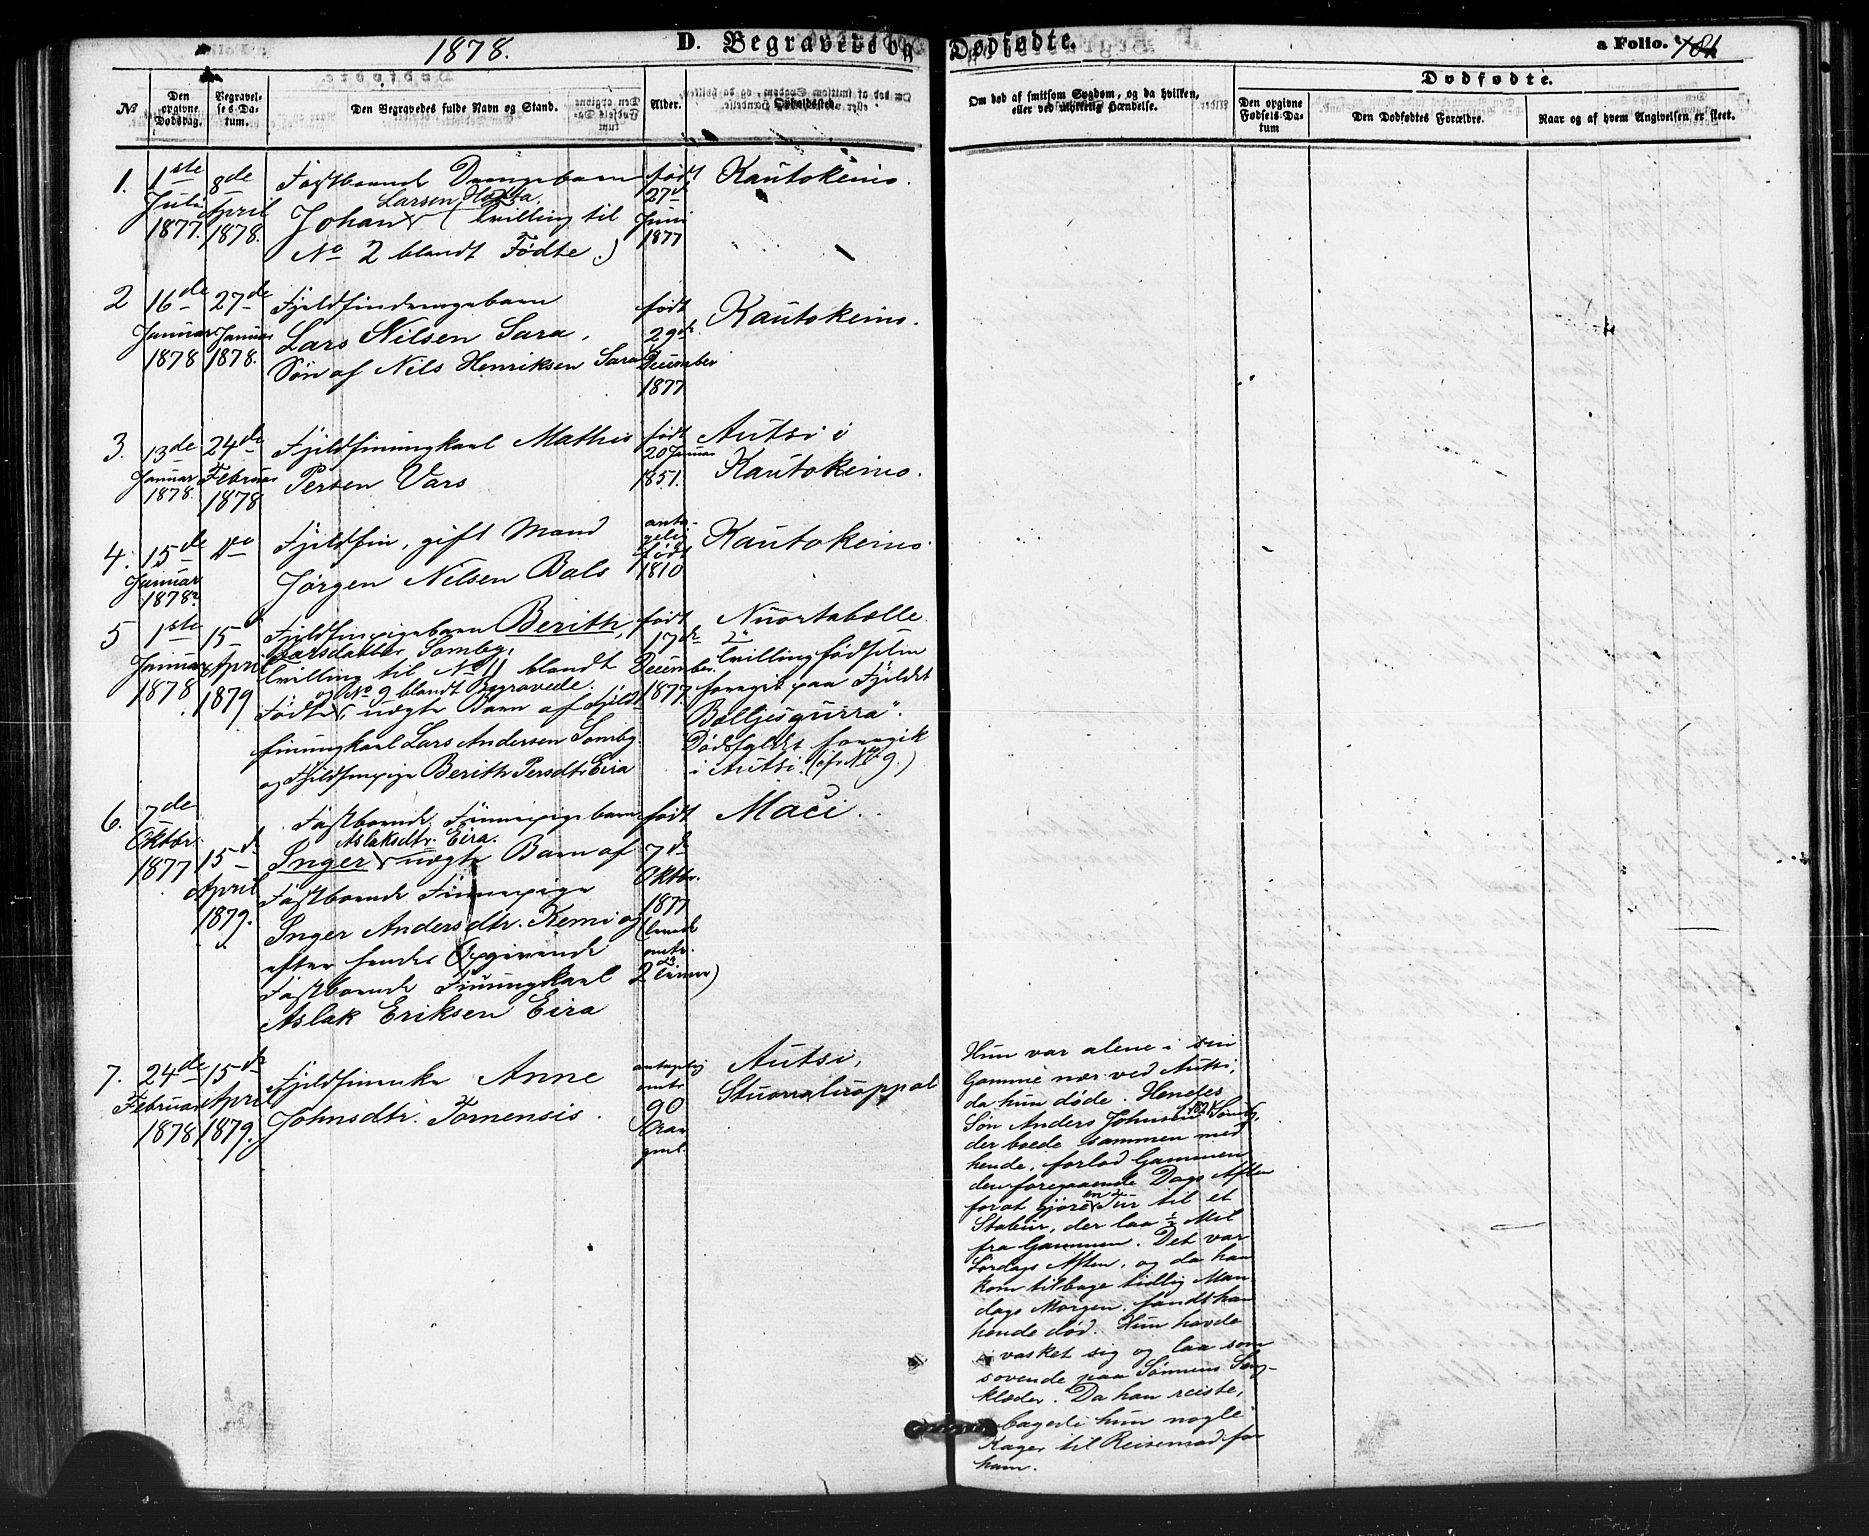 1878.
D. Begravede og Dødfødte.
a Folio. 181
No
Den opgivne Dødsdag.
Begravelses-Datum.
Den Begravedes fulde Navn og Stand.
Alder.
Opholdssted.
Om død af smitsom Sygdom, og da hvilken,
eller ved ulykkelig Hændelse.
Dødfødte.
Den opgivne Fødsels-Datum
Den Dødfødtes Forældre.
Naar og af hvem Angivelsen er skeet.
1.
1ste
Juli
1877.
8de
April
1878.
Fastboende Drengebarn
Larsen Hætta.
Johan (Tvilling til
No 2 blandt Fødte.)
født
27de
Juni
1877
Kautokeino.
2
16de
Januar
1878
27de
Januar
1878.
Fjeldfindrengebarn
Lars Nilsen Sara,
Søn af Nils Henriksen Sara
født
29de
December
1877
Kautokeino.
3.
13de
Januar
1878.
24de
Februar
1878
Fjeldfinungkarl Mathis
Persen Vars
født
20 Januar
1851.
Autsi i
Kautokeino.
4.
15de
Januar
1878.
Do
Fjeldfin, gift Mand
Jørgen Nilsen Bals
anta-
gelig
født
1810
Kautokeino.
5
1ste
Januar
1878
15
April
1879
Fjeldfinpigebarn Berith,
Larsdatter Somby,
Tvilling til No 11 blandt
og No 9 blandt Begravede.
Fødte, uægte Barn af Fjeld-
finungkarl Lars Andersen Somby
og Fjeldfinpige Berith Persdtr Eira
født
17de
December
1877.
Nuortabælle.
Tvillingfødselen
foregik paa Fjeldet
Dødsfaldet foregik
i Autsi. (cfr No 9.)
6.
7de
Oktbr.
1877
15de
April
1879.
Fastboende Finnepigebarn
Aslaksdtr. Eira.
Inger uægte Barn af
Fastboende Finnepige
Inger Andersdtr. Kemi og
efter hendes Opgivende
Fastboende Finungkarl
Aslak Eriksen Eira
født
7de
Oktbr.
1877
(levede
omtr.
2 Timer)
Maci.
7.
24de
Februar
1878
15de
April
1879.
Fjeldfinenke Anne
Johnsdtr. Tornensis.
antagelig
omtr
90
Aar
gml.
Autsi,
Hun var alene i sin
Gamme nær ved Autsi,
da hun døde. Hendes
Søn Anders Johnsen Somby,
der boede sammen med
hende, forlod Gammen
den foregaaende Dags Aften
forat gjøre en Tur til et
Stabur, der laa ½ Mil
fra Gammen. Det var
Lørdags Aften, og da han
kom tilbage tidlig Man
dags Morgen, fandt han
hende død. Hun havde
vasket sig og laa som
sovende paa Sønnens Seng-
klæder. Da han reiste,
bagede hun nogle
Kager til Reisemad for
ham.